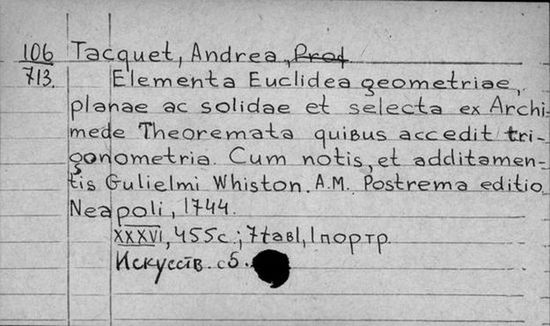 106 Tacquet, Andrea, Prof
713. Elementa Euclidea geometriae,
planae ac solidae et selecta ex Archi
mede Theoremata quibus accedit tri-
gonometria. Cum notis, et additamen-
tis Gulielmi Whiston. A.M. Postrema editio
Neapoli, 1744.
XXXVI, 455 c.; 7 tabl, 1 портр.
Искусств. сб.